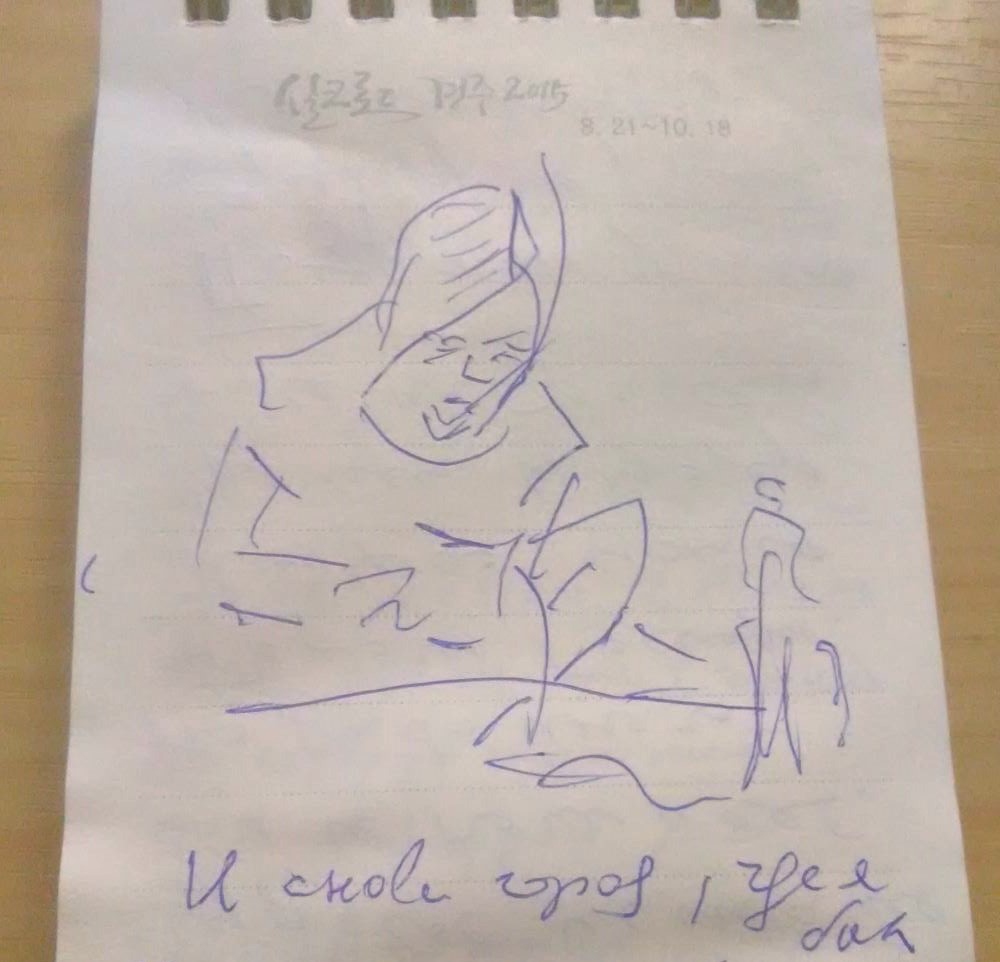 실크로드 경주 2015
8. 21~10. 18
И снова город, где я